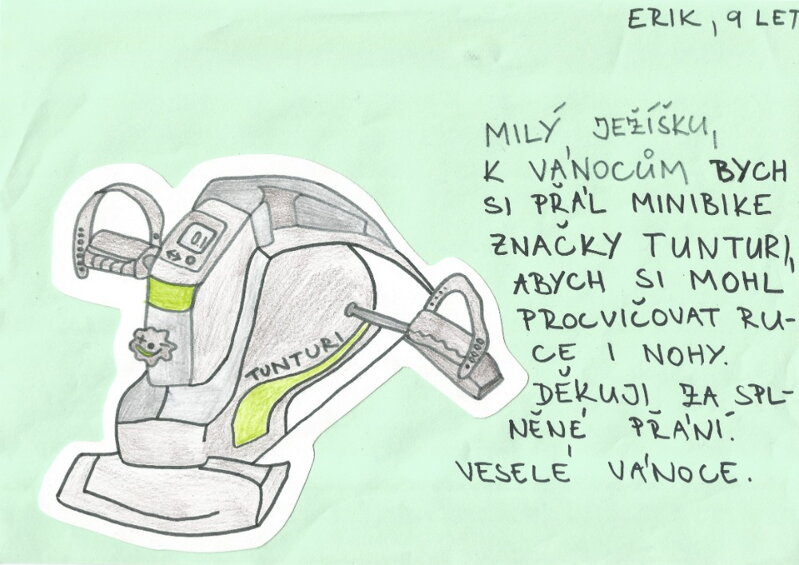 ERIK, 9 LET
MILÝ JEŽÍŠKU,
K VÁNOCŮM BYCH
SI PŘÁL MINIBIKE
ZNAČKY TUNTURI,
ABYCH SI MOHL
PROCVIČOVAT RU-
CE I NOHY.
DĚKUJI ZA SPL-
NĚNÉ PŘÁNÍ.
VESELÉ VÁNOCE.
0.1
TUNTURI